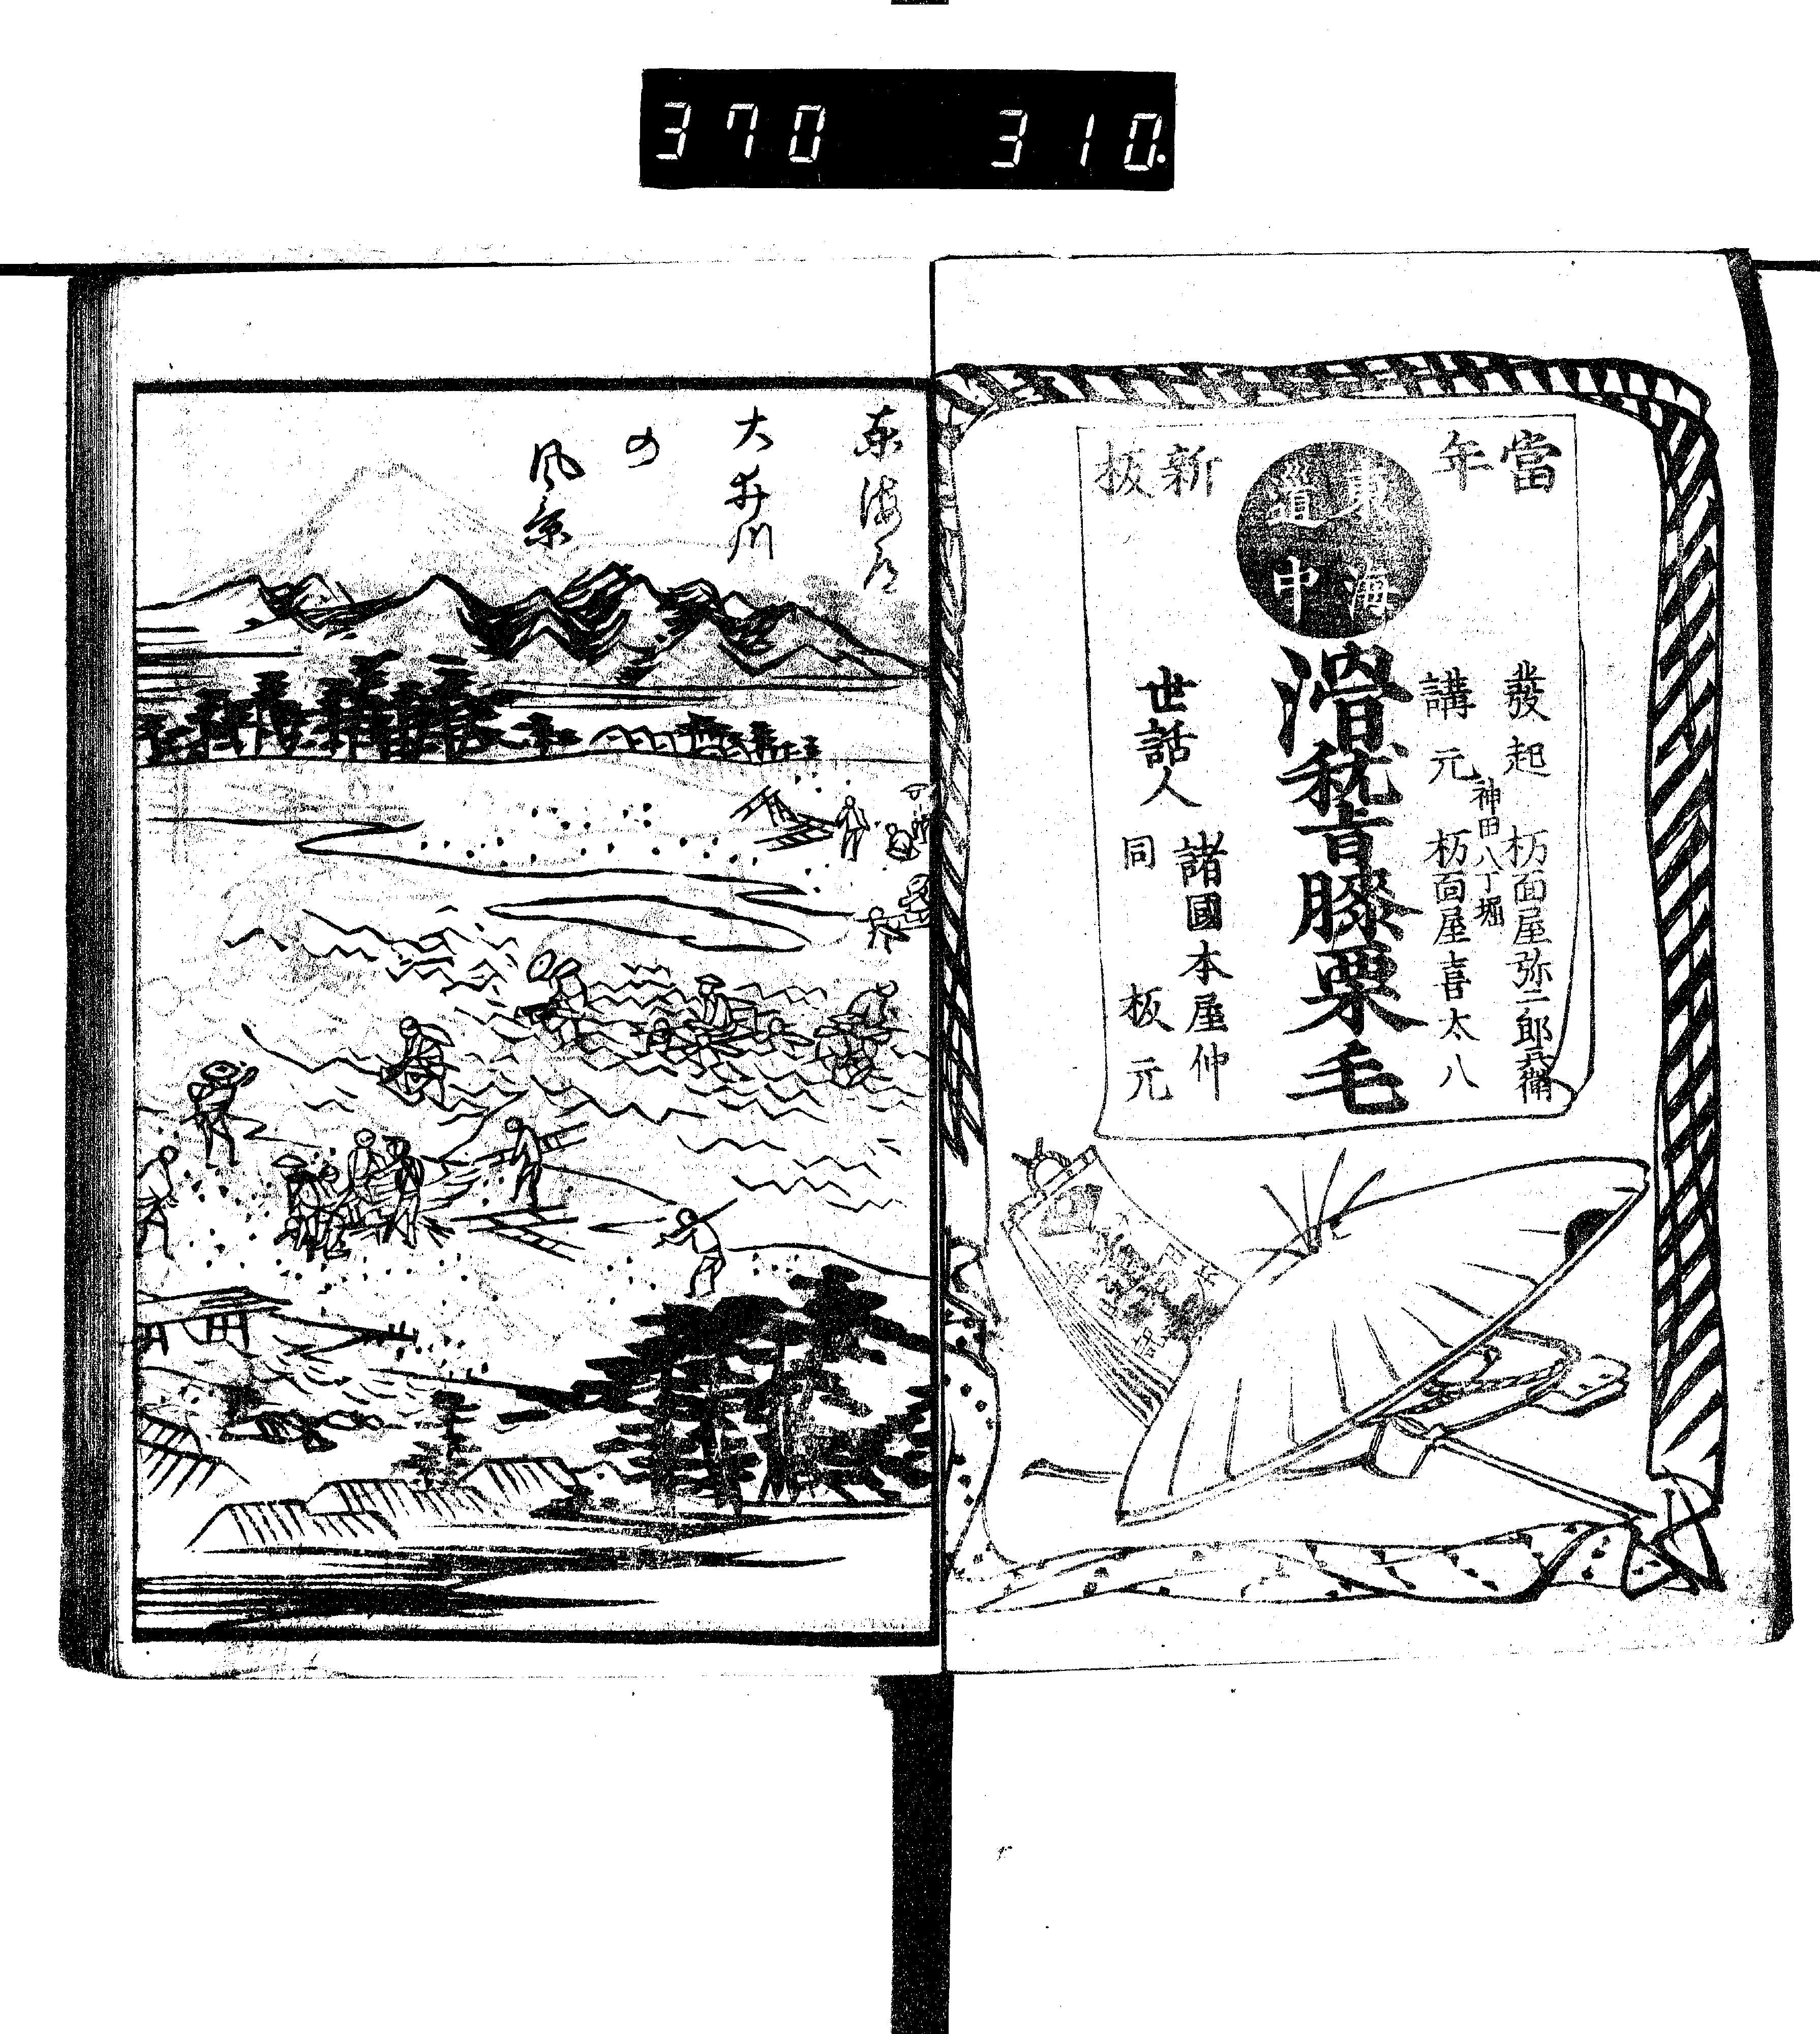 370 310.
當年
新板
東海
道中
滑稽膝栗毛
發起 栃面屋弥二郎兵衛
神田八丁堀
講元 栃面屋喜太八
世話人 諸國本屋仲
同 板元
東海道
大井川
の
風景